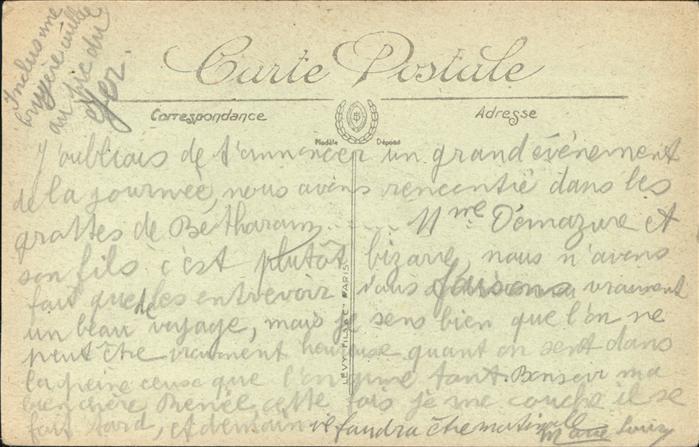 Inclus une
bruyère cueillie
au pic du
Ger.
Carte Postale
Correspondance
Adresse
Modèle Déposé
J'oubliais de t'annoncer un grand événement
de la journée, nous avons rencontré dans les
grottes de Bétharam ..... Mme Démazure et
son fils c'est plutôt bizarre, nous n'avons
fait que les entrevoir. Nous faisons vraiment
un beau voyage, mais je sens bien que l'on ne
peut être vraiment heureuse quant on sent dans
la peine ceux que l'on aime tant. Bonsoir ma
bien chère Renée, cette fois je me couche il se
fait tard, et demain il faudra être matinale
Marie Louise
LEVY FILS & Cie PARIS